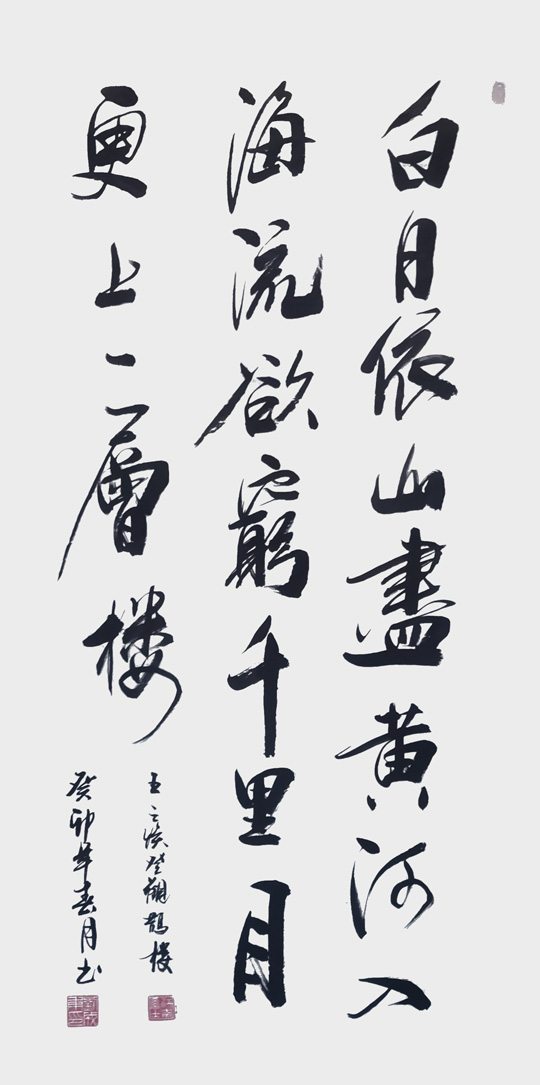 白日依山盡黄河入
海流欲窮千里目
更上一層楼
王之渙登鸛鵲楼
癸卯年春月书